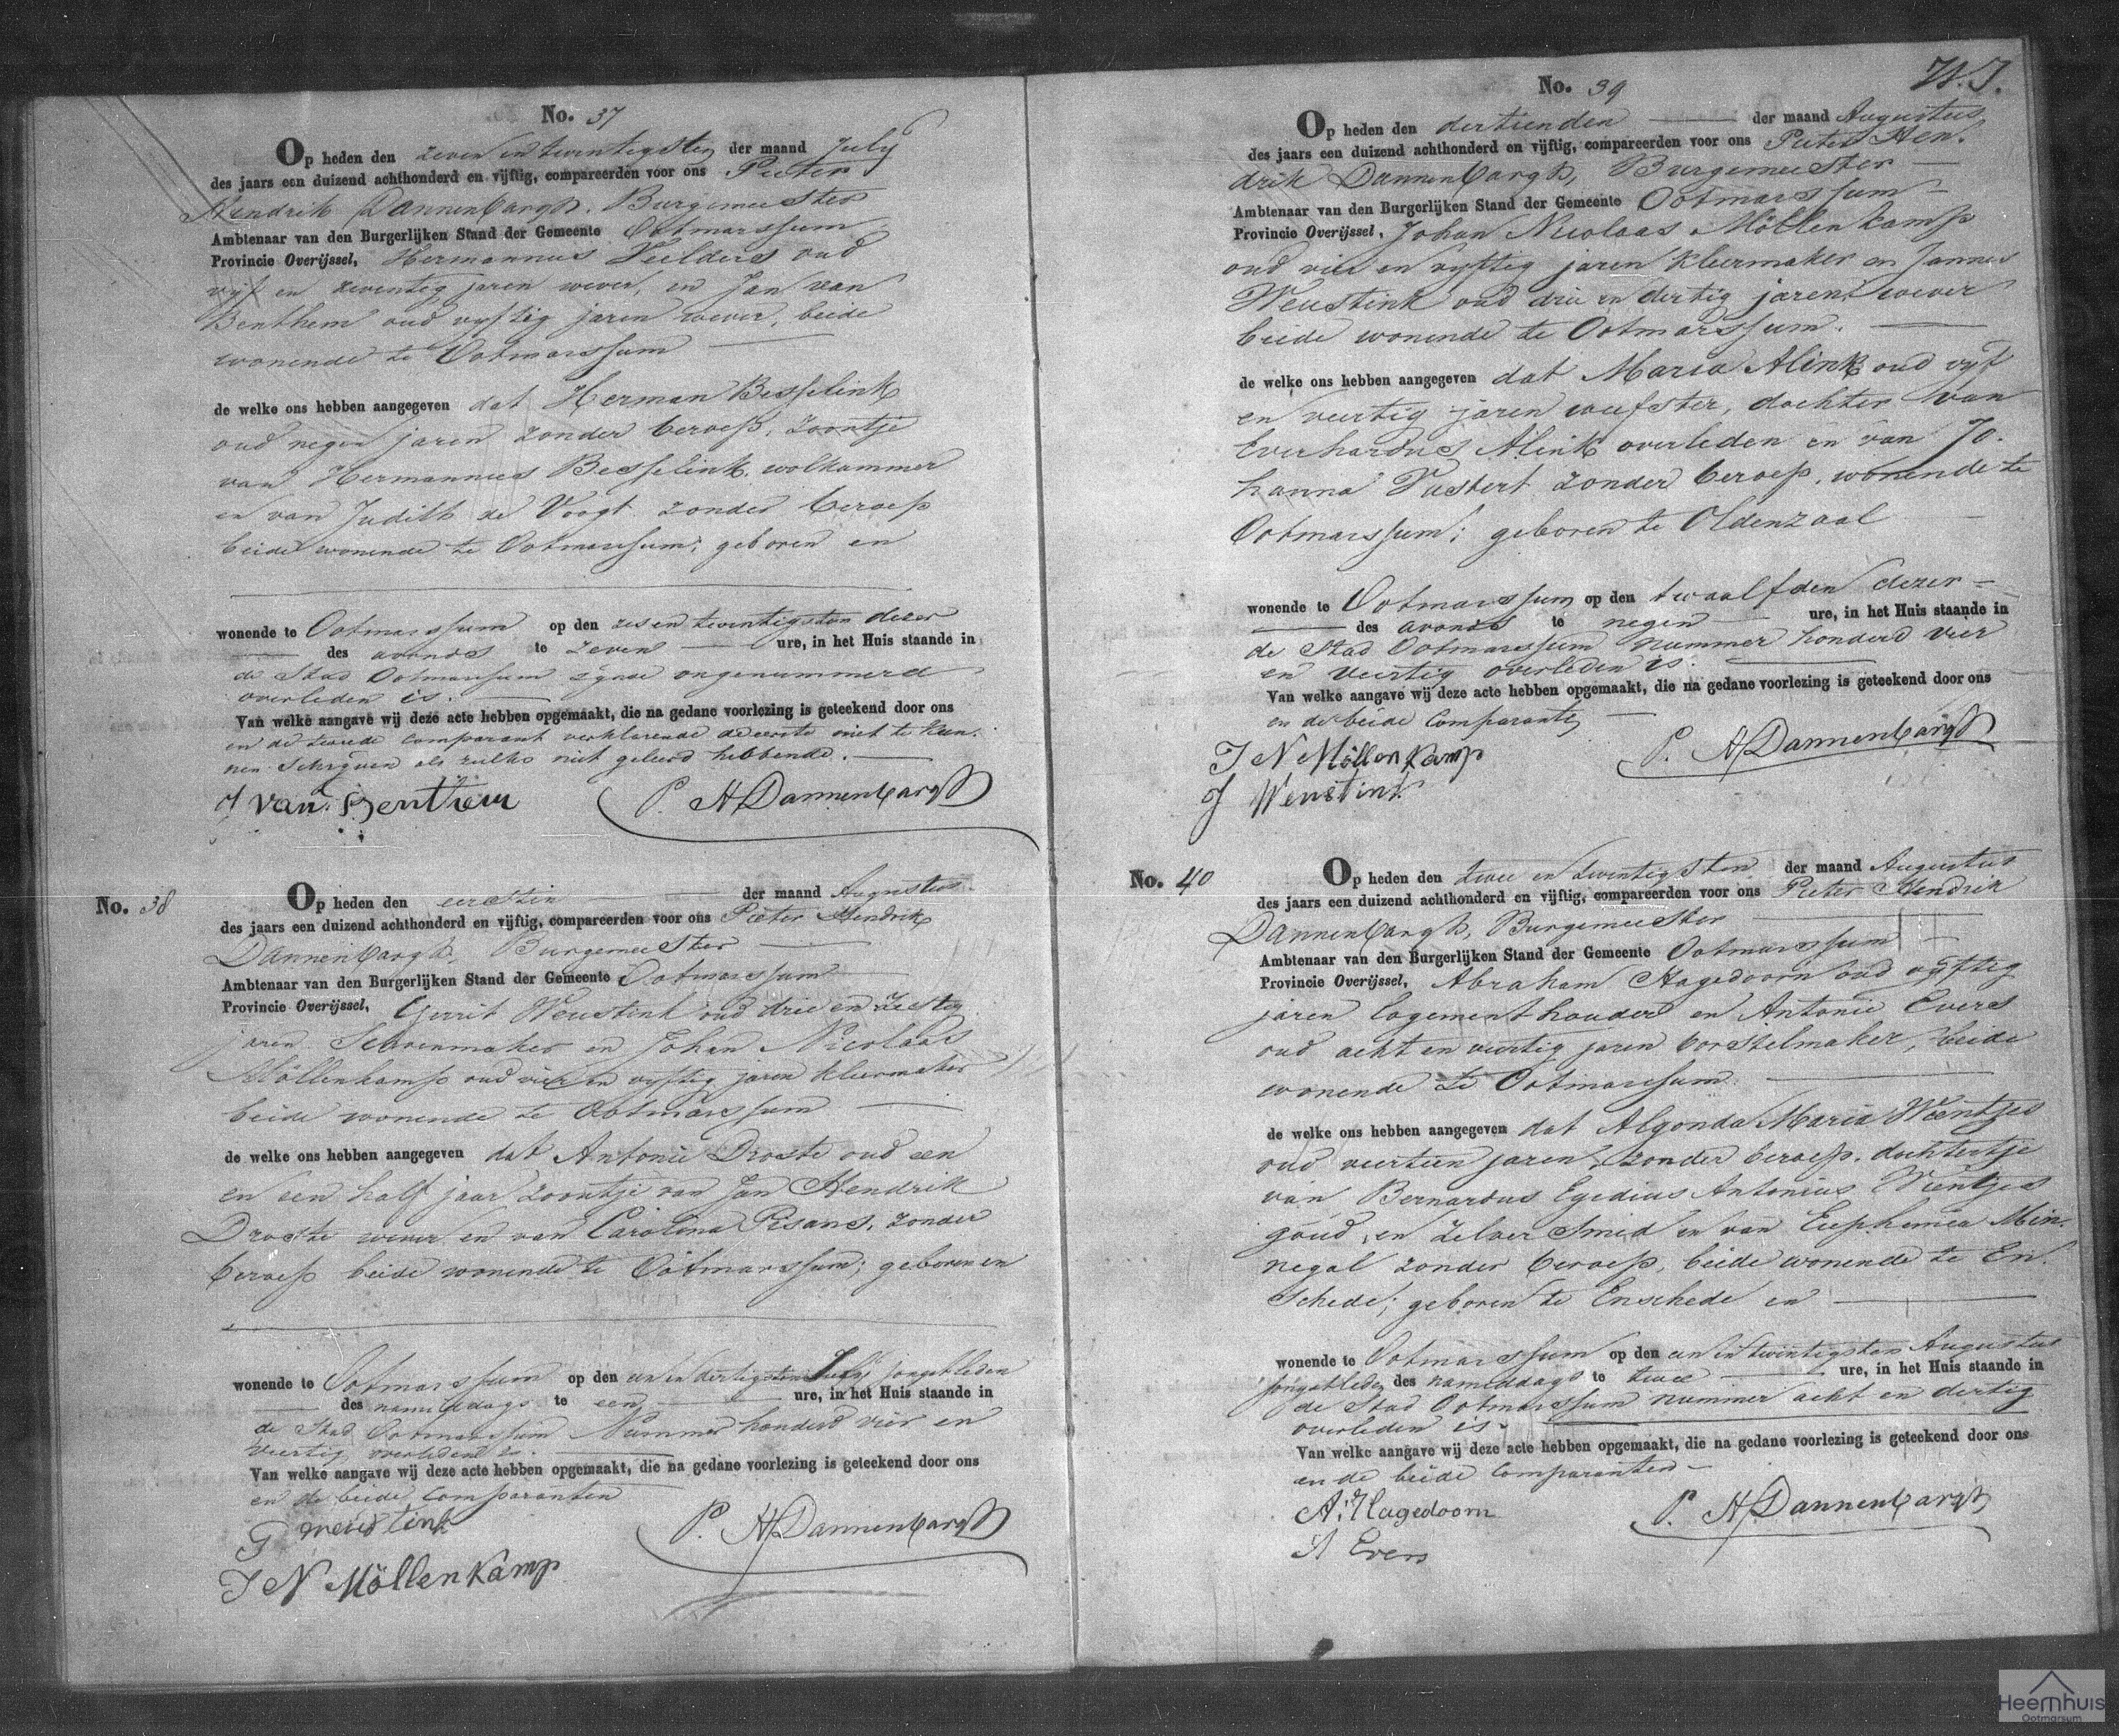 No. 37
Op heden den zeven en twintigsten der maand July
des jaars een duizend achthonderd en vijftig, compareerden voor ons Pieter
Hendrik Dannenbargh, Burgemeester
Ambtenaar van den Burgerlijken Stand der Gemeente Ootmarssum
Provincie Overijssel, Hermannus Velders oud
vijf en zeventig jaren wever, en Jan van
Benthem oud vyftig jaren wever, beide
wonende te Ootmarssum
de welke ons hebben aangegeven dat Herman Besselink
oud negen jaren zonder beroep, zoontje
van Hermannus Besselink, wolkammer
en van Judith de Voogt zonder beroep
beide wonende te Ootmarssum; geboren en
wonende te Ootmarssum op den zes en twentigsten dezer
des avonds te zeven ure, in het Huis staande in
de Stad Ootmarssum zynde ongenummerd
overleden is.
Van welke aangave wij deze acte hebben opgemaakt, die na gedane voorlezing is geteekend door ons
en de tweede comparant verklarende de eerste niet te kun-
nen schryven als zulks niet geleerd hebbende.
J van Benthem P. H Dannenbargh
No. 38
Op heden den eersten der maand Augustus
des jaars een duizend achthonderd en vijftig, compareerden voor ons Pieter Hendrik
Dannenbargh, Burgemeester
Ambtenaar van den Burgerlijken Stand der Gemeente Ootmarssum
Provincie Overijssel, Gerrit Weustink oud drie en zestig
jaren Schoenmaker en Johan Nicolaas
Möllenkamp oud vier en vyftig jaren kleermaker
beide wonende te Ootmarssum
de welke ons hebben aangegeven dat Antonie Droste oud een
en een half jaar zoontje van Jan Hendrik
Droste wever en van Carolina Pisans, zonder
beroep beide wonende te Ootmarssum; geboren en
wonende te Ootmarssum op den een en dertigsten July jongstleden
des namiddags te een ure, in het Huis staande in
de Stad Ootmarssum Nummer honderd vier en
veertig overleden is.
Van welke aangave wij deze acte hebben opgemaakt, die na gedane voorlezing is geteekend door ons
en de beide Comparanten
G Weustink P. H Dannenbargh
J N Möllenkamp
No. 39
Op heden den dertienden der maand Augustus
des jaars een duizend achthonderd en vijftig, compareerden voor ons Pieter Hen-
drik Dannenbargh, Burgemeester
Ambtenaar van den Burgerlijken Stand der Gemeente Ootmarssum
Provincie Overijssel, Johan Nicolaas Möllenkamp
oud vier en vyftig jaren kleermaker en Jannes
Weustink oud drie en dertig jaren, wever
beide wonende te Ootmarssum.
de welke ons hebben aangegeven dat Maria Alink oud vyf
en veertig jaren weefster, dochter van
Everhardus Alink overleden en van Jo-
hanna Pastert zonder beroep, wonende te
Ootmarssum; geboren te Oldenzaal
wonende te Ootmarssum op den twaalfden dezer
des avonds te negen ure, in het Huis staande in
de Stad Ootmarssum nummer honderd vier
en veertig overleden is.
Van welke aangave wij deze acte hebben opgemaakt, die na gedane voorlezing is geteekend door ons
en de beide Comparanten
J N Möllenkamp P. H Dannenbargh
J Weustink
No. 40
Op heden den twee en twintigsten der maand Augustus
des jaars een duizend achthonderd en vijftig, compareerden voor ons Pieter Hendrik
Dannenbargh, Burgemeester
Ambtenaar van den Burgerlijken Stand der Gemeente Ootmarssum
Provincie Overijssel, Abraham Hagedoorn oud vyftig
jaren logementhouder en Antonie Evers
oud acht en veertig jaren borstelmaker, beide
wonende te Ootmarssum
de welke ons hebben aangegeven dat Algonda Maria Wientjes
oud veertien jaren, zonder beroep, dochtertje
van Bernardus Egidius Antonius Wientjes
goud en zilver smid en van Euphemia Min-
negal zonder beroep, beide wonende te En-
schede; geboren te Enschede en
wonende te Ootmarssum op den een en twintigsten Augustus
jongstleden des namiddags te twee ure, in het Huis staande in
de Stad Ootmarssum nummer acht en dertig
overleden is.
Van welke aangave wij deze acte hebben opgemaakt, die na gedane voorlezing is geteekend door ons
en de beide Comparanten
A. Hagedoorn P. H Dannenbargh
A Evers
Heemhuis
Ootmarsum